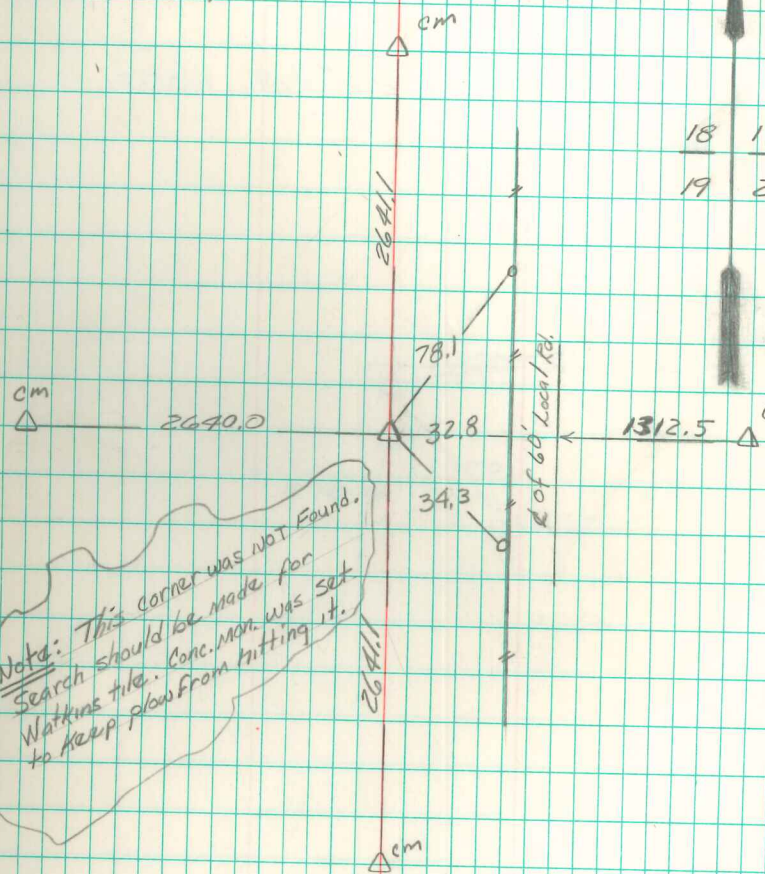 cm
18 1
19 2
2641.1
78.1
cm
2640.0
32.8
1312.5
34.3
℄ of 60' Local Rd.
Note: This corner was NOT Found.
Search should be made for
Watkins tile. Conc. Mon. was set
to keep plow from hitting it.
2641.1
cm